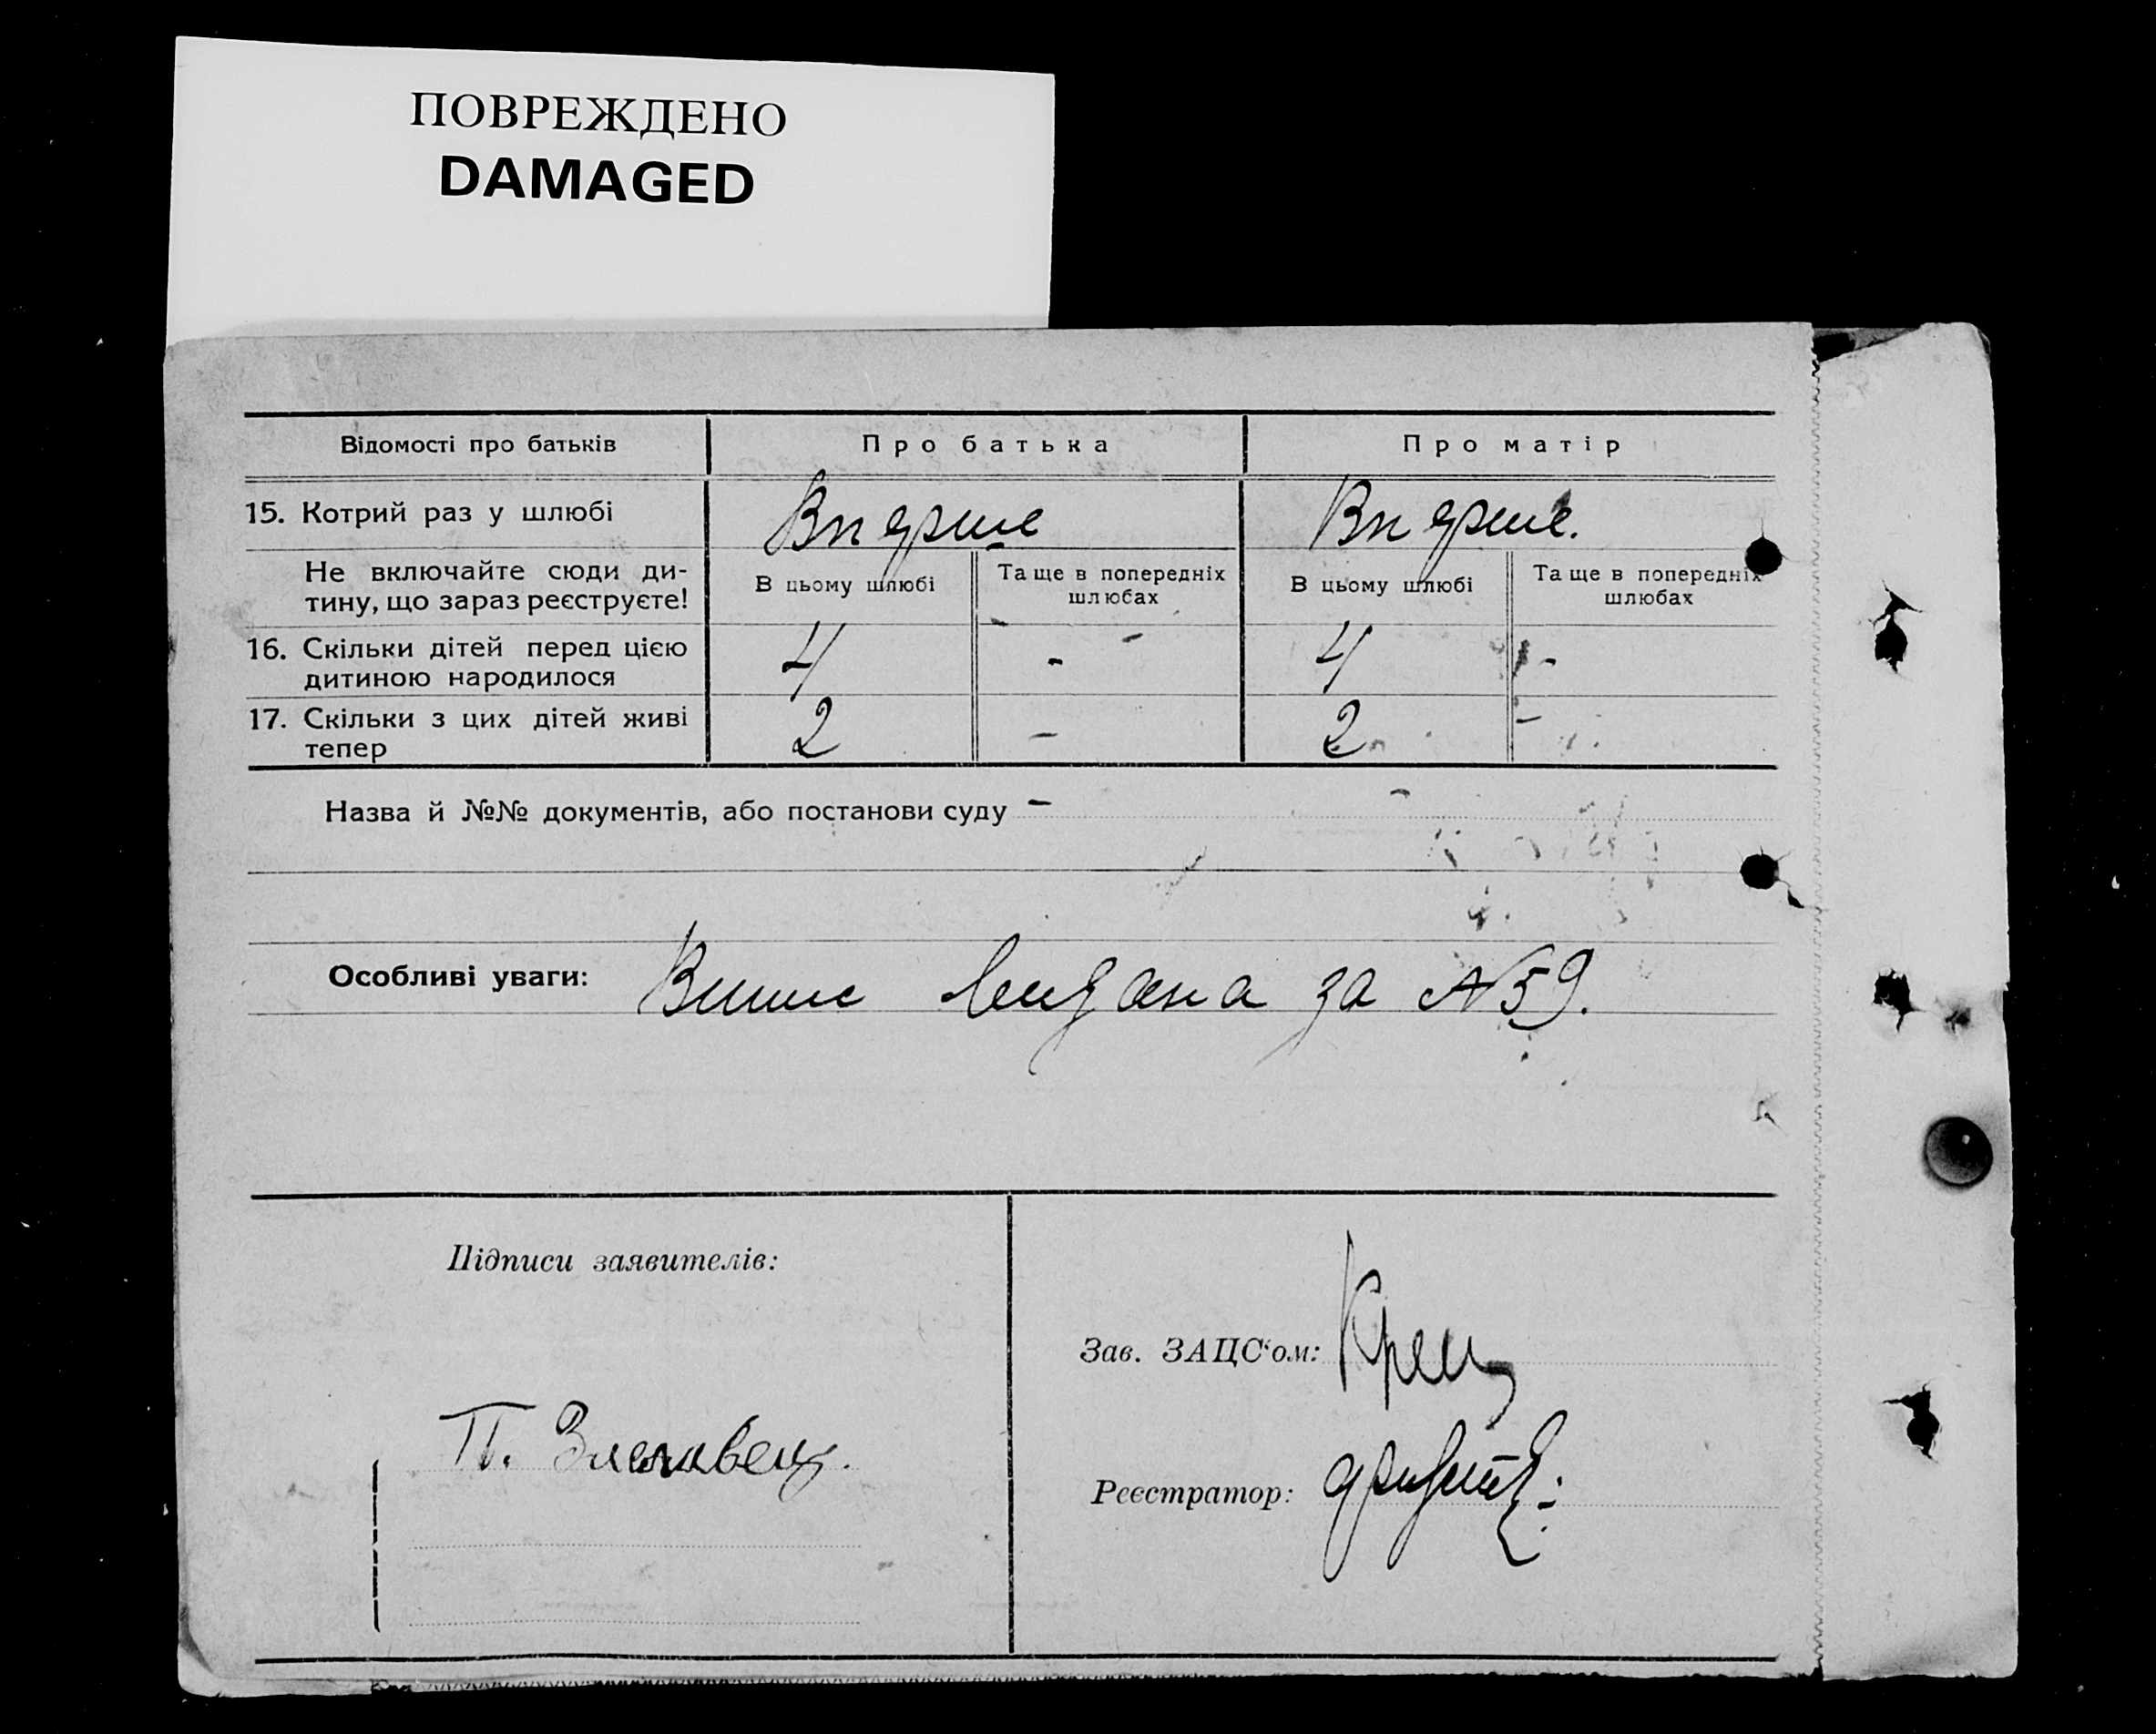 ПОВРЕЖДЕНО
DAMAGED
Відомості про батьків
Про батька
Про матір
15. Котрий раз у шлюбі
Вперше
Вперше.
Не включайте сюди ди-
тину, що зараз реєструєте!
В цьому шлюбі
Та ще в попередніх
шлюбах
В цьому шлюбі
Та ще в попередніх
шлюбах
16. Скільки дітей перед цією
дитиною народилося
4
-
4
-
17. Скільки з цих дітей живі
тепер
2
-
2
-
Назва й №№ документів, або постанови суду -
Особливі уваги: Випис видана за №59.
Підписи заявителів:
П.
Зав. ЗАЦС‘ом:
Реєстратор: